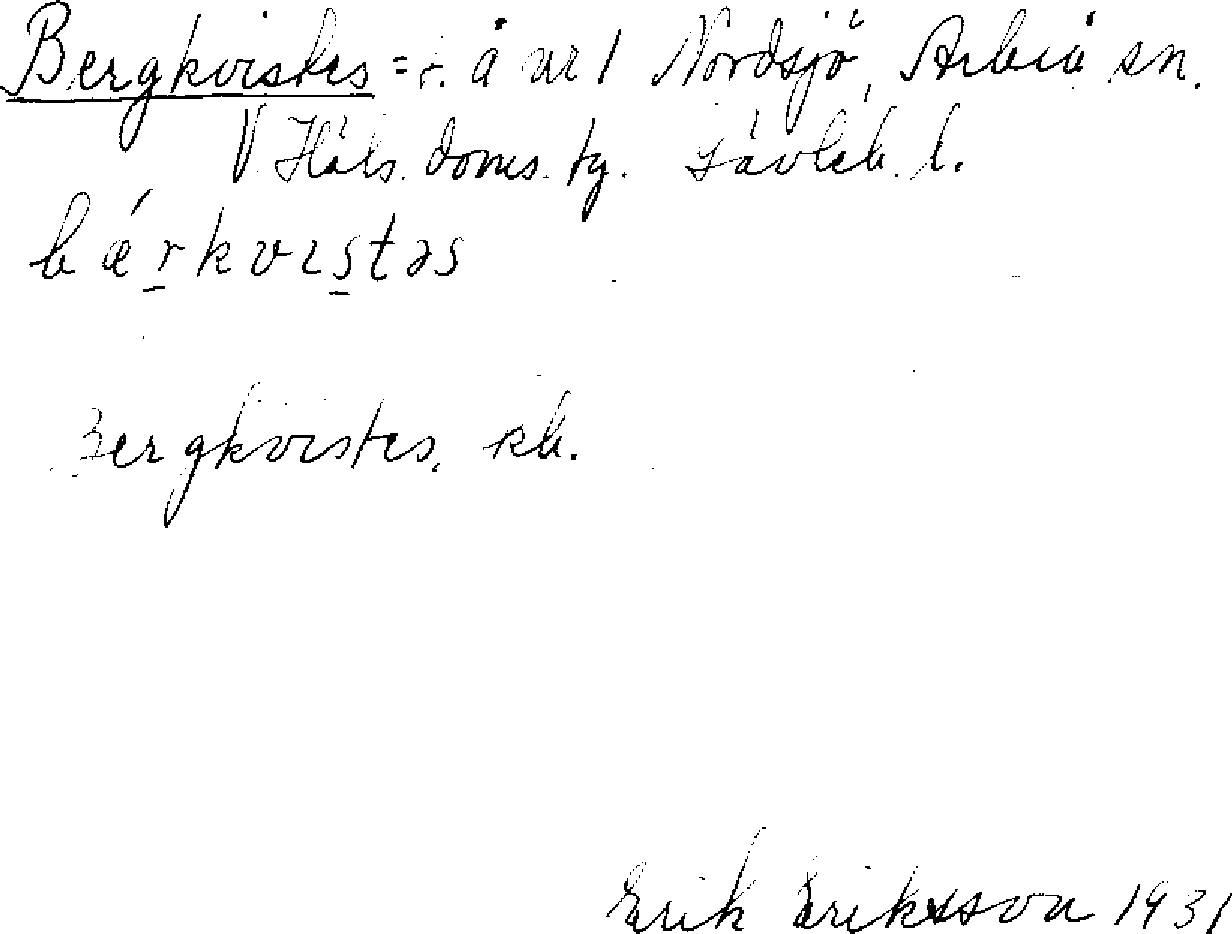 Bergkvistes = r. å nr 1 Nordsjö, Arbrå sn.
V. Häls. doms. tg. Gävleb. l.
bǽrkvistəs
Bergkvistes, kb.
Erik Eriksson 1931